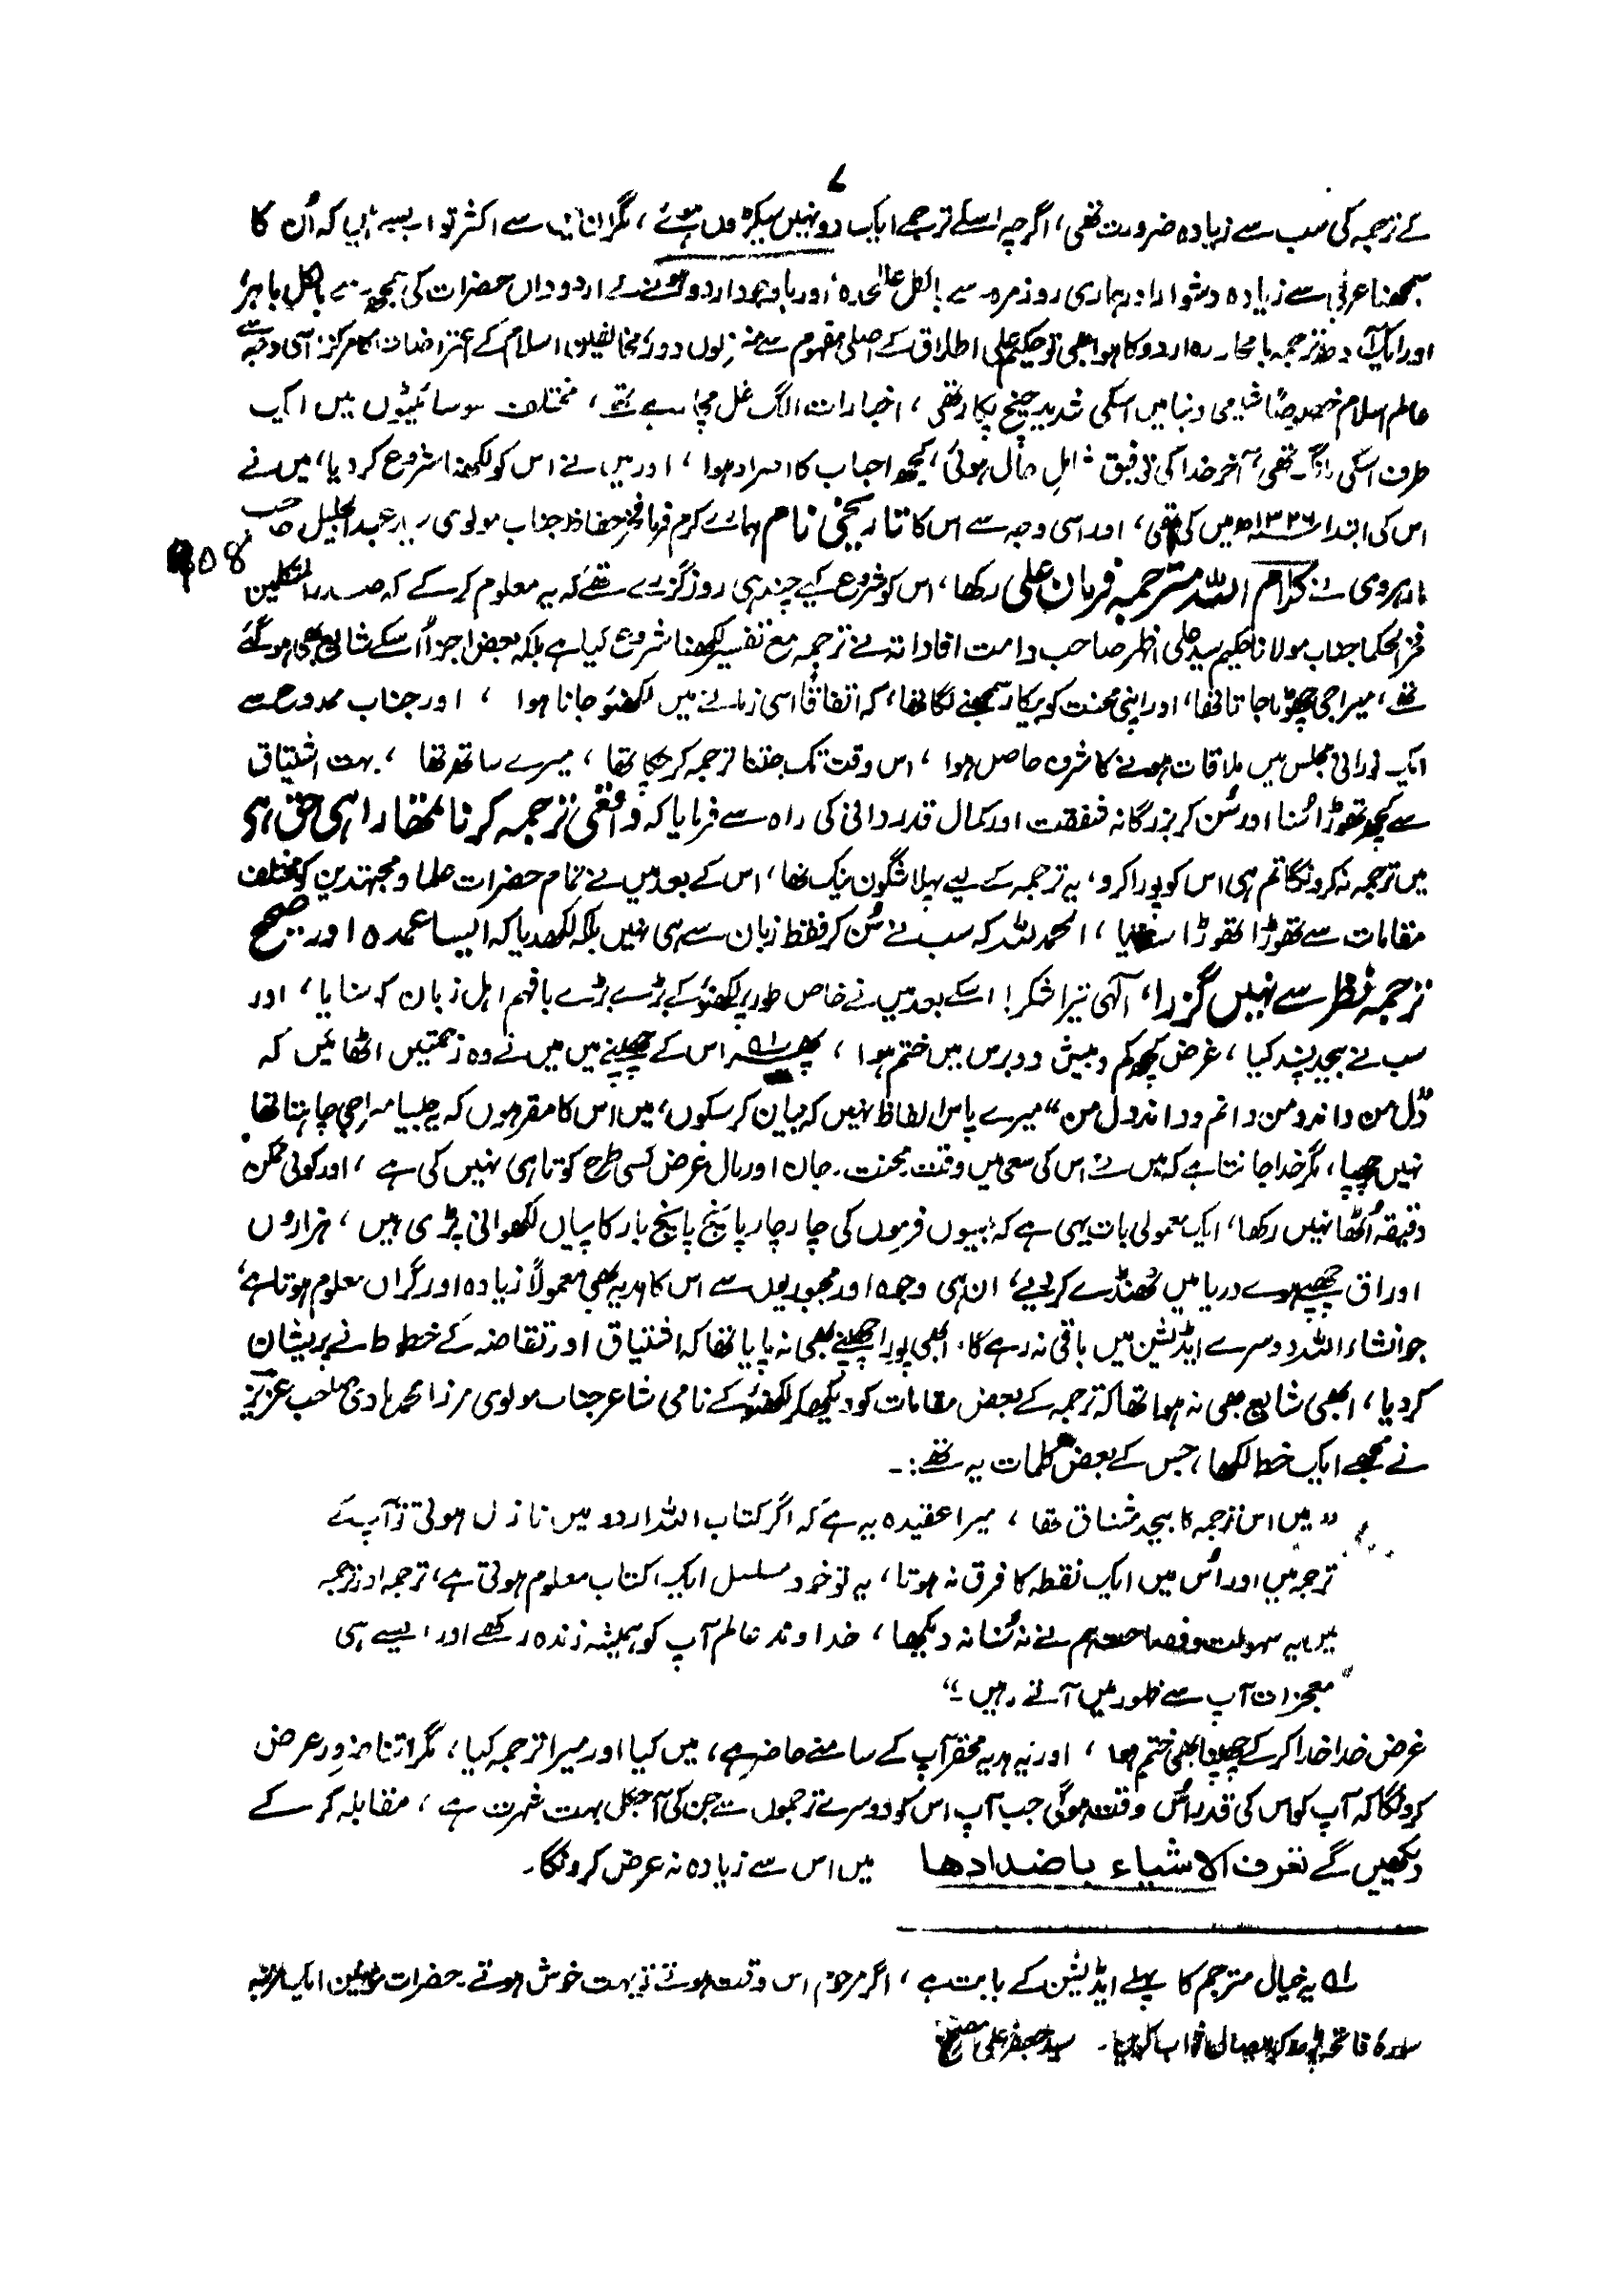 ۷
کے ترجمہ کی سب سے زیادہ ضرورت تھی، اگرچہ اسکے ترجمے ایک دو نہیں سیکڑوں ہوئے، مگر ان میں سے اکثر تو ایسے ہیں کہ اُن کا
سمجھنا عربی سے زیادہ دشوار اور ہماری روزمرہ سے بالکل علٰحدہ، اور باوجود اردو ہونے کے اردو داں حضرات کی سمجھ سے بالکل باہر،
اور ایک آدھ ترجمہ بامحاورہ اردو کا ہوا بھی تو حکیم علی اطلاق کے اصلی مفہوم سے منزلوں دور، مخالفین اسلام کے اعتراضات کا مرکز، اسی وجہ سے
عالم اسلام خصوصًا شیعی دنیا میں اسکی شدید چیخ پکار تھی، اخبارات الگ غل مچا رہے تھے، مختلف سوسائٹیوں میں ایک
طرف اسکی مانگ تھی، آخر خدا کی توفیق شامل حال ہوئی، کچھ احباب کا اصرار ہوا، اور میں نے اس کو لکھنا شروع کر دیا، میں نے
اس کی ابتدا ۱۳۲۶ھ میں کی تھی، اور اسی وجہ سے اس کا تاریخی نام ہمارے کرم فرما فخر حفاظ جناب مولوی سید عبدالجلیل صاحب
908
مارہروی نے کلام اللہ مترجمہ فرمان علی رکھا، اس کو شروع کیے چند ہی روز گزرے تھے کہ یہ معلوم کر کے کہ صدر المتکلمین
فخر الحکما جناب مولانا حکیم سید علی اظہر صاحب دامت افاداتہ نے ترجمہ مع تفسیر لکھنا شروع کیا ہے بلکہ بعض اجزا اسکے شایع بھی ہو گئے
تھے، میرا جی چھوٹا جاتا تھا، اور اپنی محنت کو بیکار سمجھنے لگا تھا، کہ اتفاقًا اسی زمانے میں لکھنؤ جانا ہوا، اور جناب ممدوح سے
ایک نورانی مجلس میں ملاقات ہونے کا شرف حاصل ہوا، اس وقت تک جتنا ترجمہ کر چکا تھا، میرے ساتھ تھا، بہت اشتیاق
سے کچھ تھوڑا سُنا اور سُن کر بزرگانہ شفقت اور کمال قدردانی کی راہ سے فرمایا کہ واقعی ترجمہ کرنا تمھارا ہی حق ہی
میں ترجمہ نہ کرونگا تم ہی اس کو پورا کرو، یہ ترجمہ کے لیے پہلا شگون نیک تھا، اس کے بعد میں نے تمام حضرات علما و مجتہدین کو مختلف
مقامات سے تھوڑا تھوڑا سنایا، الحمد للہ کہ سب نے سُن کر فقط زبان سے ہی نہیں بلکہ لکھدیا کہ ایسا عمدہ اور صحیح
ترجمہ نظر سے نہیں گزرا، آلہی تیرا شکر! اسکے بعد میں نے خاص طور پر لکھنؤ کے بڑے بڑے بافہم اہل زبان کو سنایا، اور
سب نے بیحد پسند کیا، غرض کچھ کم و بیش دو برس میں ختم ہوا، پھر اس کے چھپنے میں میں نے وہ زحمتیں اٹھائیں کہ
”دل من داند و من دانم و داند دل من“ میرے پاس الفاظ نہیں کہ بیان کر سکوں، میں اس کا مقر ہوں کہ یہ جیسا میرا جی چاہتا تھا
نہیں چھپا، مگر خدا جانتا ہے کہ میں نے اس کی سعی میں وقت، محنت، جان اور مال غرض کسی طرح کوتاہی نہیں کی ہے، اور کوئی ممکن
دقیقہ اُٹھا نہیں رکھا، ایک معمولی بات یہی ہے کہ بیسوں فرموں کی چار چار پانچ پانچ بار کاپیاں لکھوانی پڑی ہیں، ہزاروں
اوراق چھپے ہوے دریا میں ٹھنڈے کر دیے، ان ہی وجوہ اور مجبوریوں سے اس کا ہدیہ بھی معمولاً زیادہ اور گراں معلوم ہوتا ہے،
جو انشاء اللہ دوسرے ایڈیشن میں باقی نہ رہے گا. ابھی پورا چھپنے بھی نہ پایا تھا کہ اشتیاق اور تقاضہ کے خطوط نے پریشان
کر دیا، ابھی شایع بھی نہ ہوا تھا کہ ترجمہ کے بعض مقامات کو دیکھ کر لکھنؤ کے نامی شاعر جناب مولوی مرزا محمد ہادی صاحب عزیز
نے مجھے ایک خط لکھا، جس کے بعض کلمات یہ تھے:۔
”میں اس ترجمہ کا بیحد مشتاق تھا، میرا عقیدہ یہ ہے کہ اگر کتاب اللہ اردو میں نازل ہوتی تو آپ کے
ترجمہ میں اور اُس میں ایک نقطہ کا فرق نہ ہوتا، یہ تو خود مسلسل ایک کتاب معلوم ہوتی ہے، ترجمہ اور ترجمہ
میں یہ سہولت و فصاحت ہم نے نہ سُنا نہ دیکھا، خداوند عالم آپ کو ہمیشہ زندہ رکھے اور ایسے ہی
معجزات آپ سے ظہور میں آتے رہیں۔“
غرض خدا خدا کر کے چھپنا بھی ختم ہوا، اور یہ ہدیہ محقر آپ کے سامنے حاضر ہے، میں کیا اور میرا ترجمہ کیا، مگر اتنا ضرور عرض
کرونگا کہ آپ کو اس کی قدر اُس وقت ہوگی جب آپ اس کو دوسرے ترجموں سے جن کی آجکل بہت شہرت ہے، مقابلہ کر کے
دیکھیں گے تعرف الاشیاء باضدادھا میں اس سے زیادہ نہ عرض کرونگا۔
لہ یہ خیال مترجم کا پہلے ایڈیشن کے بابت ہے، اگر مرحوم اس وقت ہوتے تو بہت خوش ہوتے۔ حضرات مومنین ایک مرتبہ
سورہ فاتحہ پڑھ کر ایصال ثواب کر دیں۔ سید جعفر علی مصحح